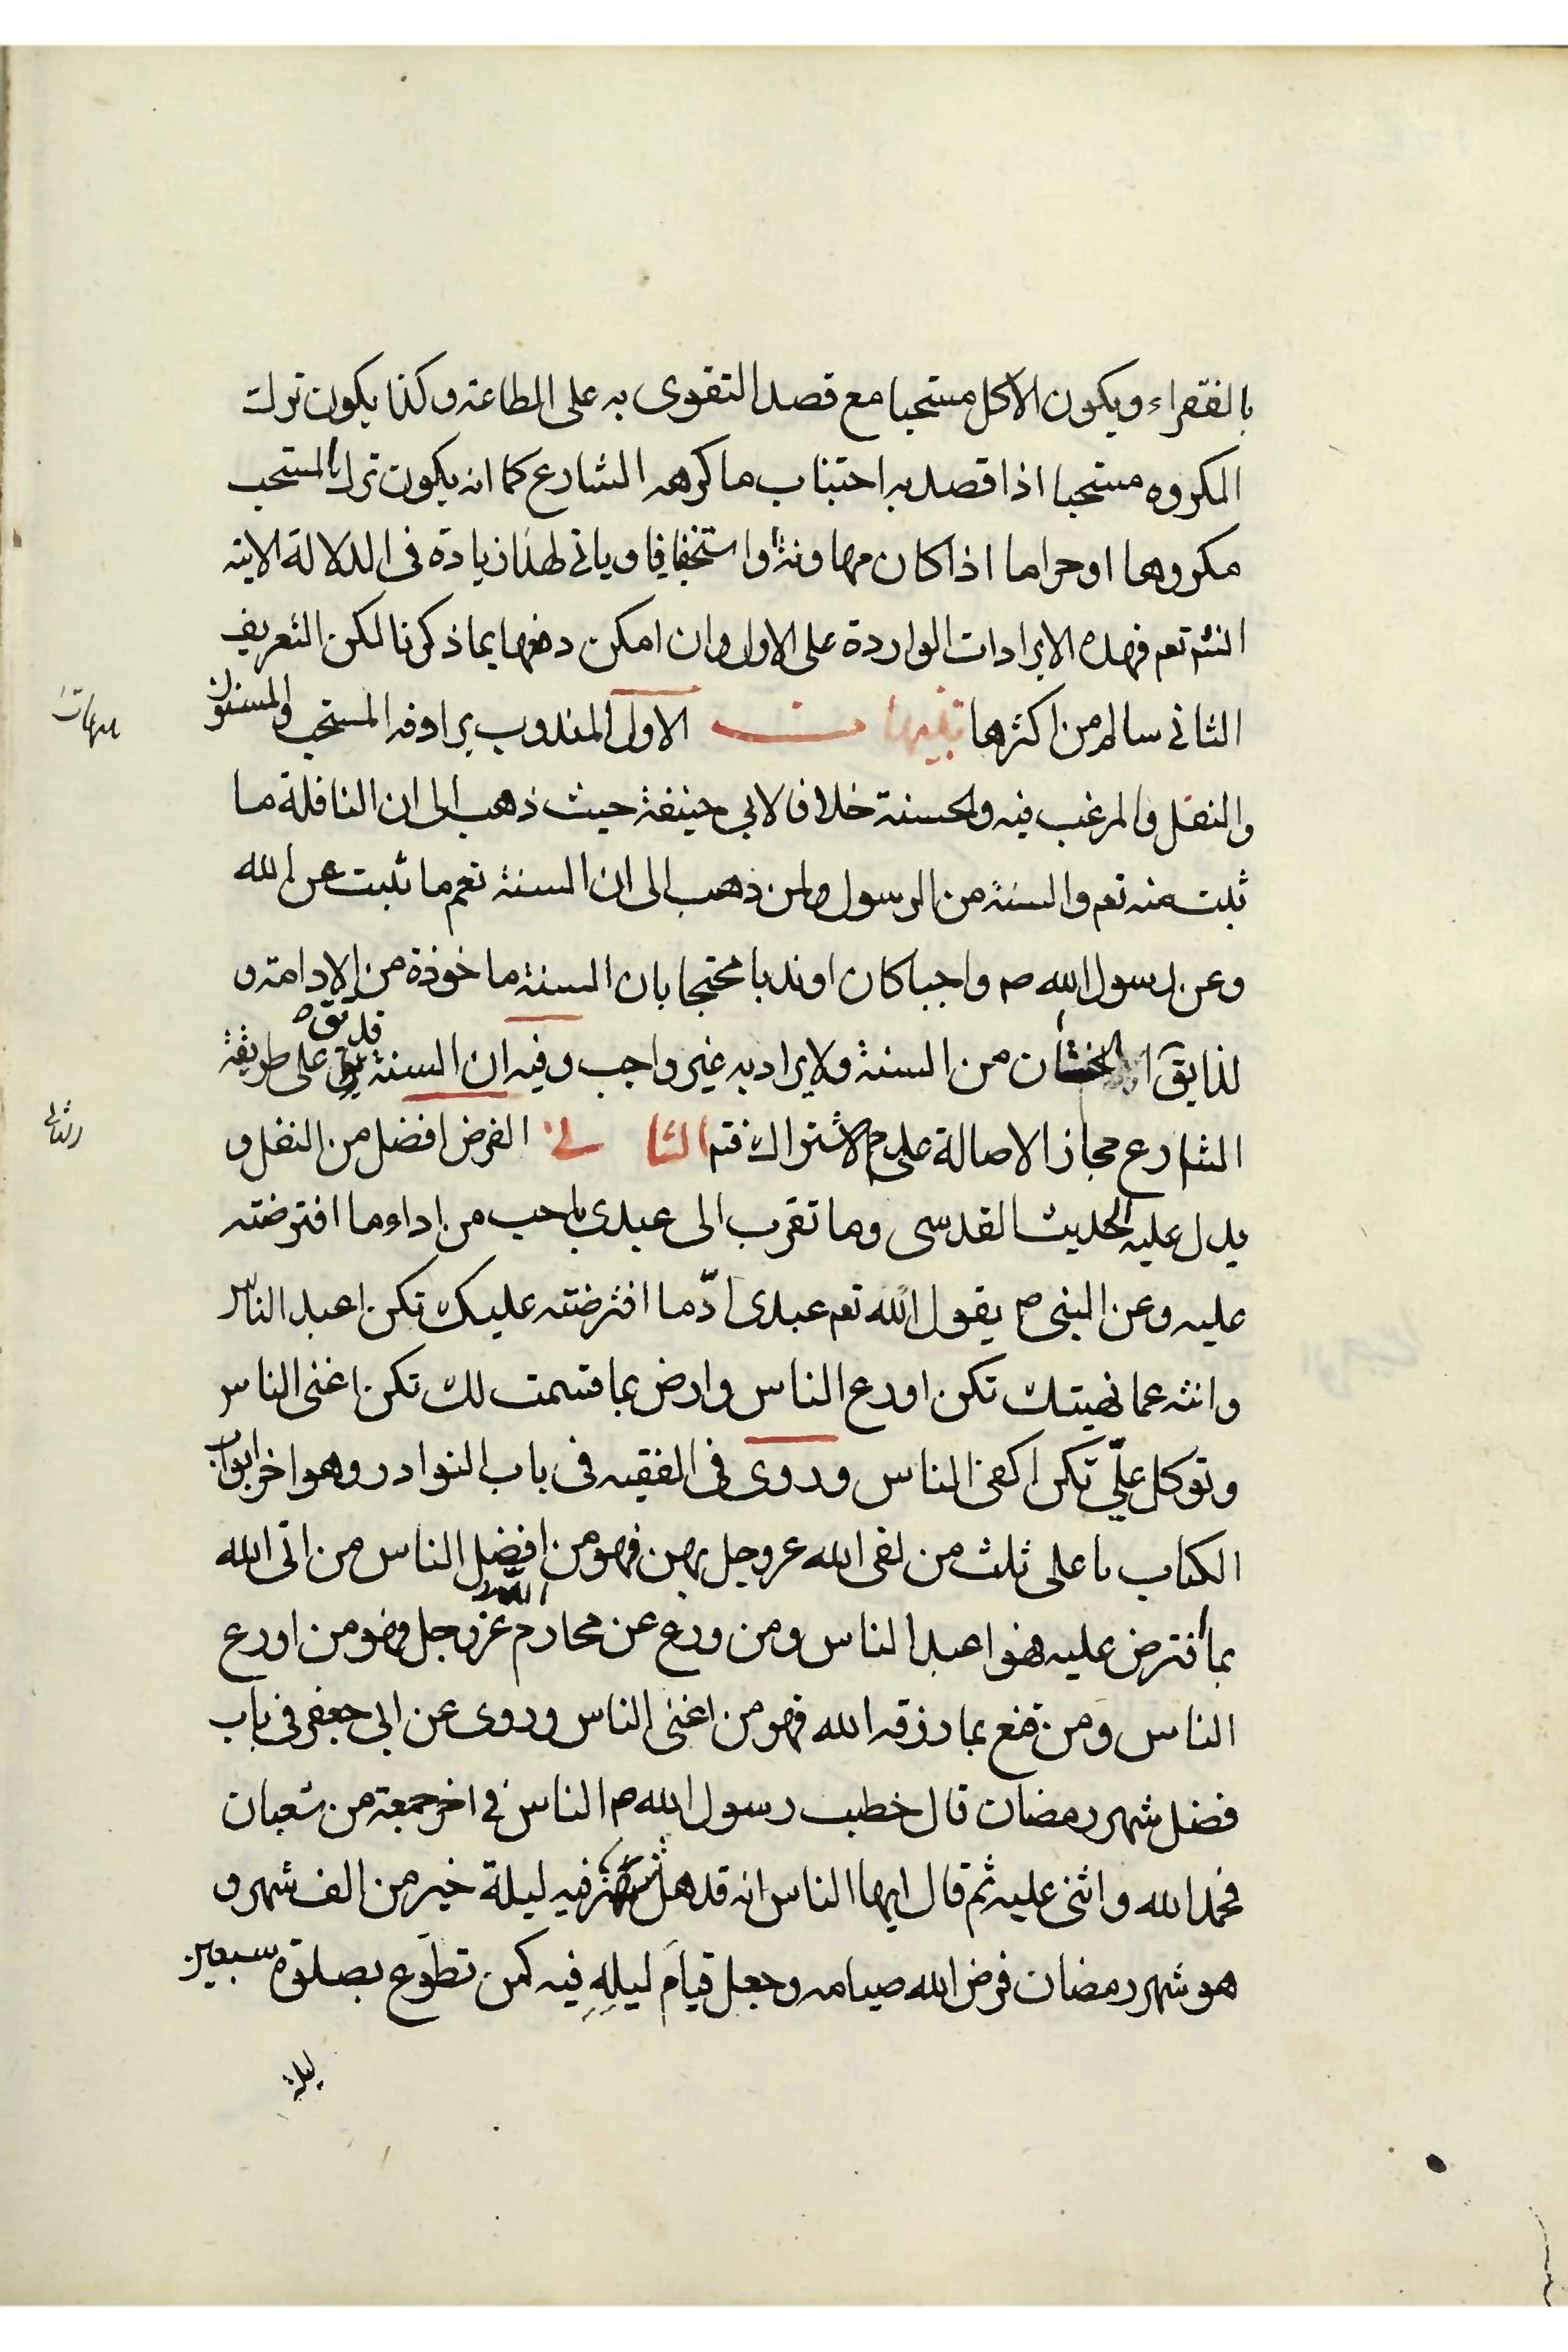 بالفقراء ويكون الاكل مستحبا مع قصد التقوى به على الطاعة وكذا يكون ترك
المكروه مستحبا اذا قصد به اجتناب ما كرهه الشارع كما انه يكون ترك المستحب
مكروها او حراما اذا كان مهاونة او استخفافا وياتى لهذا زيادة فى الدلالة الاتية
انشء تعم فهذه الايرادات الواردة على الاول وان امكن دفعها بما ذكرنا لكن التعريف
الثانى سالم من اكثرها تنبيهات الاول المندوب يرادفه المستحب والمسنون
تنبيهات
والنفل والمرغب فيه والحسنة خلافا لابى حنيفة حيث ذهب الى ان النافلة ما
ثبت منه تعم والسنة من الرسول ولمن ذهب الى ان السنة تعم ما ثبت عن الله
وعن رسول الله ص واجبا كان او ندبا محتجا بان السنة ماخوذة من الادامة و
لذا يق الختان من السنة ولا يراد به غير واجب وفيه ان السنة قد يق على طريقة
الشارع مجازا لاصالة عدم الاشتراك فتم الثانى الفرض افضل من النفل و
الثانى
يدل عليه الحديث القدسى وما تقرب الى عبدى باحب من اداء ما افترضته
عليه وعن النبى ص يقول الله تعم عبدى ادّ ما افترضته عليك تكن اعبد الناس
وانته عما نهيتك تكن اورع الناس وارض بما قسمت لك تكن اغنى الناس
وتوكل علىّ تكن اكفى الناس وروى فى الفقيه فى باب النوادر وهو اخر ابواب
الكتاب يا على ثلث من لقى الله عز وجل بهن فهو من افضل الناس من اتى الله
بما افترض عليه فهو اعبد الناس ومن ورع عن محارم الله عز وجل فهو من اورع
الناس ومن قنع بما رزقه الله فهو من اغنى الناس وروى عن ابى جعفر فى باب
فضل شهر رمضان قال خطب رسول الله ص الناس فى اخر جمعة من شعبان
فحمد الله واثنى عليه ثم قال ايها الناس انه قد شهر فيه ليلة خير من الف شهر و
هو شهر رمضان فرض الله صيامه وجعل قيام ليله فيه كمن تطوع بصلوة سبعين
ليلة